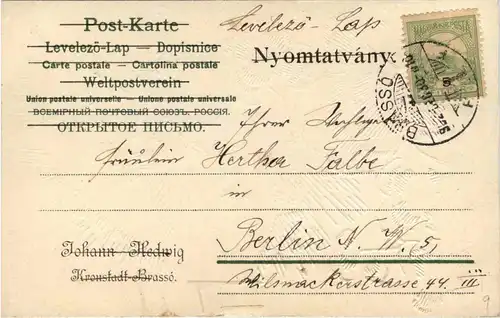 Post-Karte
Levelező-Lap
Levelező-Lap — Dopisnice
Carte postale — Cartolina postale
Nyomtatvány.
Weltpostverein
Union postale universelle — Unione postale universale
ВСЕМІРНЫЙ ПОЧТОВЫЙ СОЮЗЪ. РОССІЯ.
ОТКРЫТОЕ ПИСЬМО.
Ihrer
Fräulein Herthor Falbe
in
Berlin N. W. 5,
Johann Hedwig
Kronstadt-Brassó.
Wilsnackerstrasse 44 III